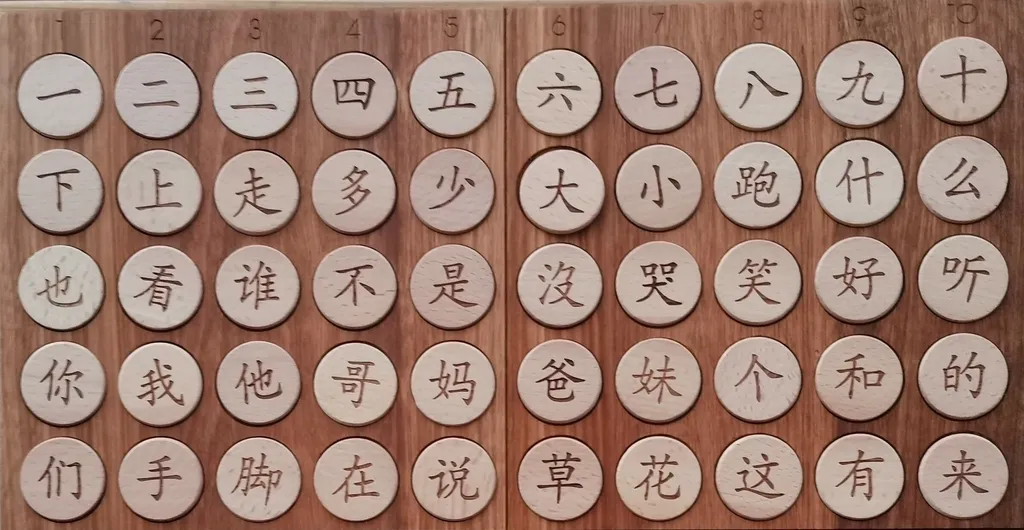 1 2 3 4 5 6 7 8 9 10
一 二 三 四 五 六 七 八 九 十
下 上 走 多 少 大 小 跑 什 么
也 看 谁 不 是 沒 哭 笑 好 听
你 我 他 哥 妈 爸 妹 个 和 的
们 手 脚 在 说 草 花 这 有 来